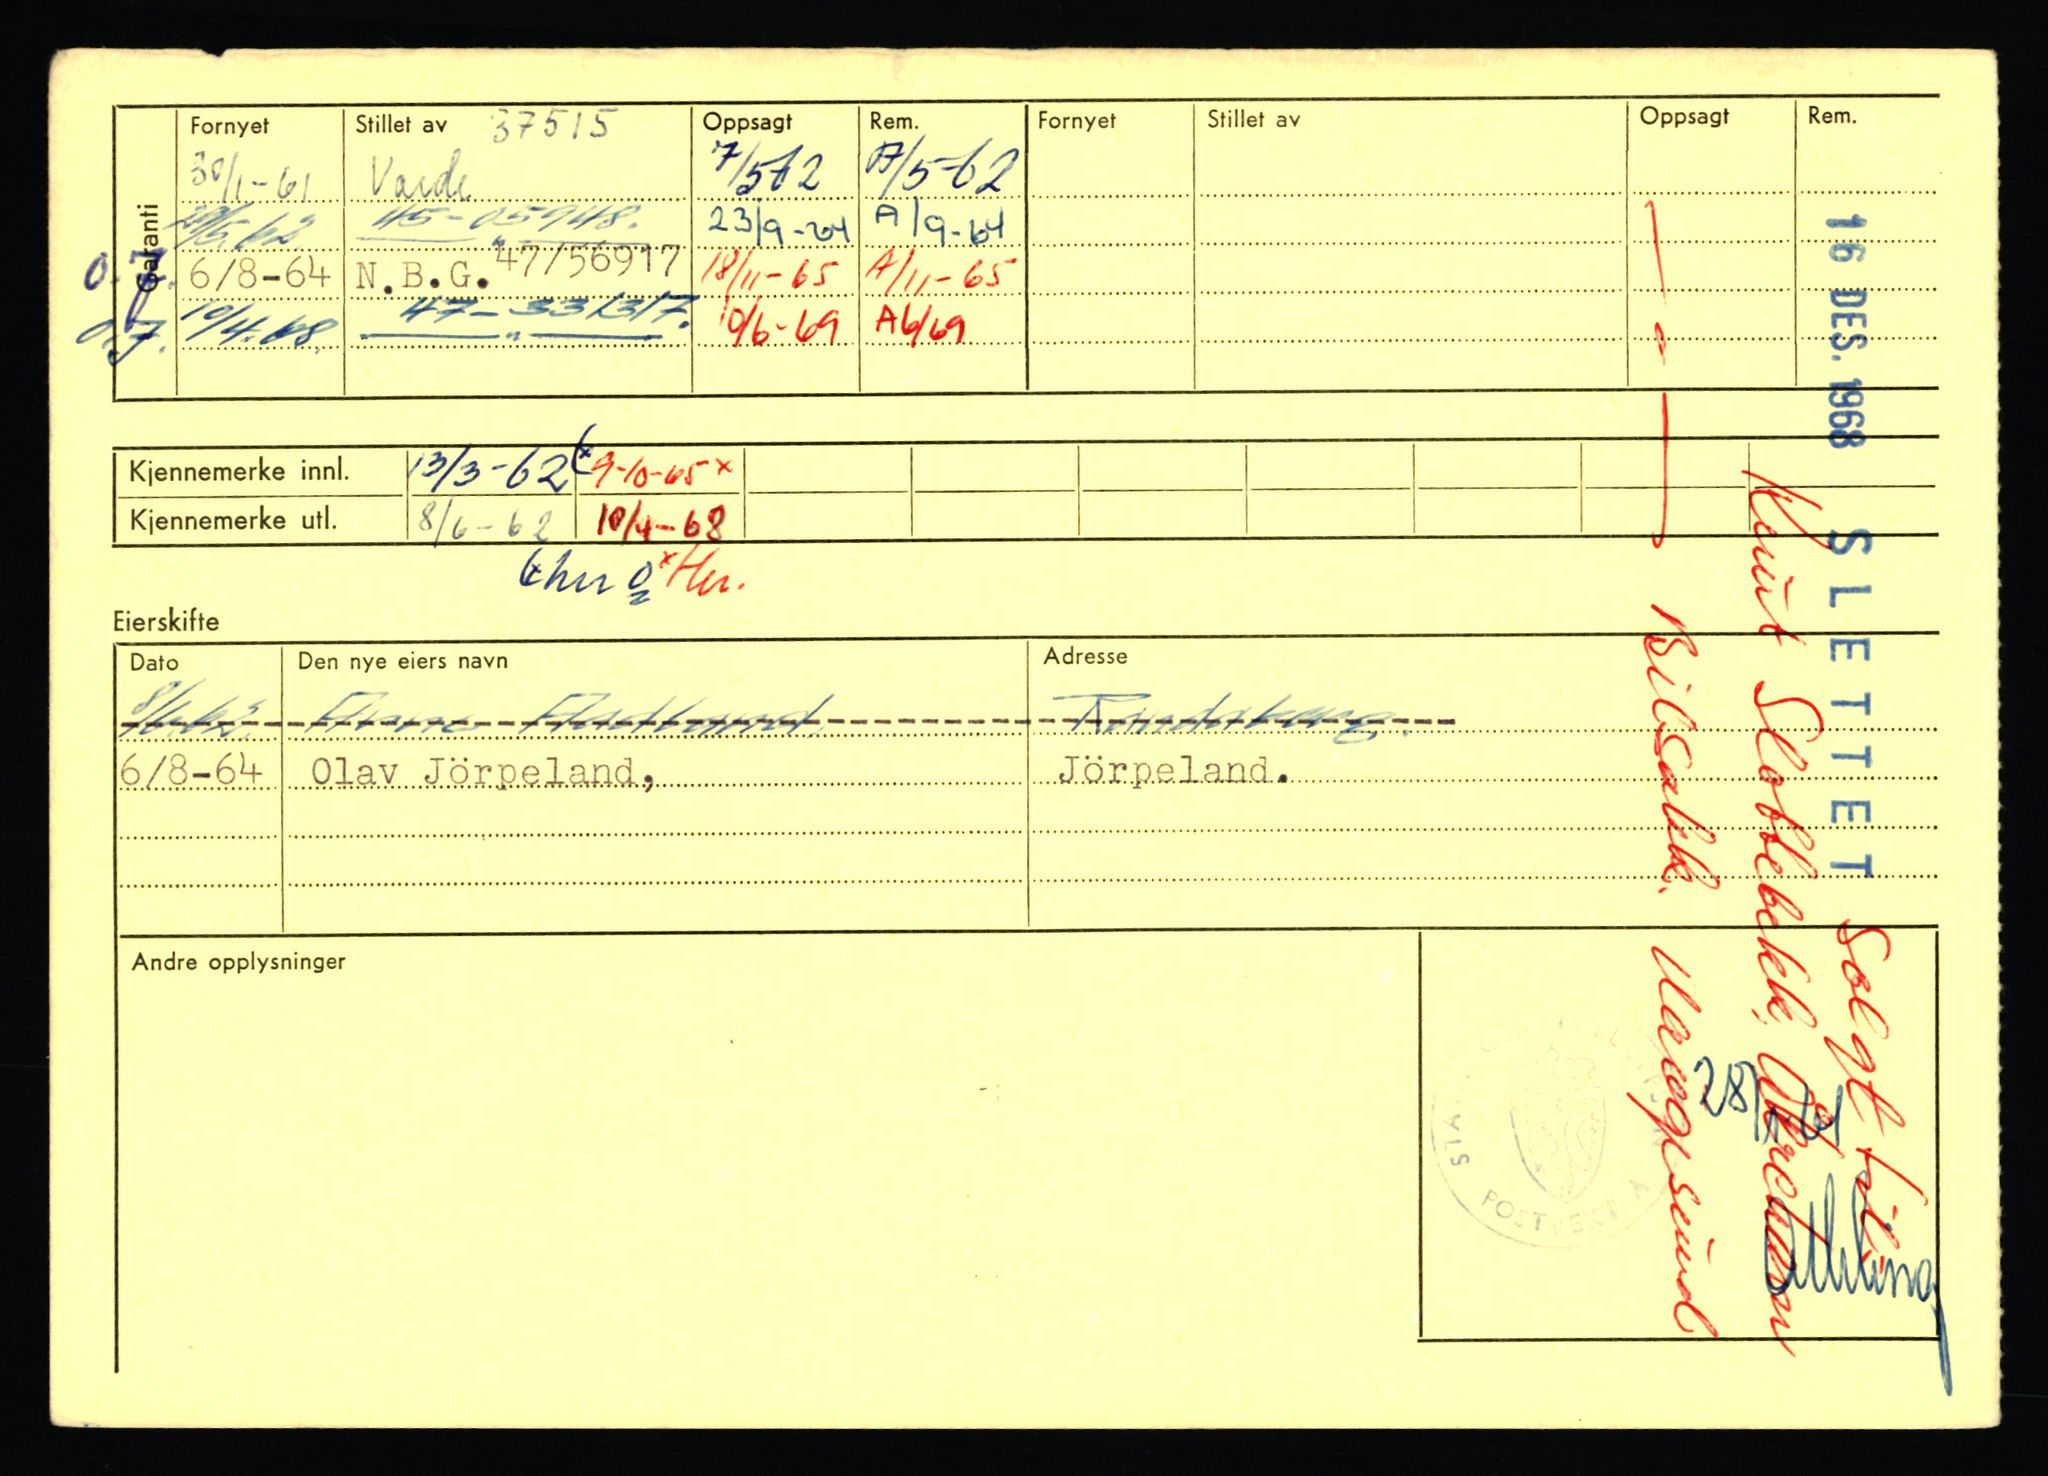 Garanti
Fornyet Stillet av 37515 Oppsagt Rem. Fornyet Stillet av Oppsagt Rem.
30/1-61 Varde 7/5-62 A/5-62
29/5.62 45-05948. 23/9-64 A/9-64
O.J. 6/8-64 N.B.G. 47/56917 18/11-65 A/11-65
O.J. 10/4.68. 47-331317. 10/6-69 A6/69
Kjennemerke innl. 13/3-62 (x 9-10-65 x
Kjennemerke utl. 8/6-62 10/4-68
(x her x Her.
Eierskifte
Dato Den nye eiers navn Adresse
8/6.62. Randaberg.
6/8-64 Olav Jörpeland, Jörpeland.
Andre opplysninger
16 DES. 1968 SLETTET
Solgt til:
Knut Slottebekk,
— " — Bilsakk. Haugesund
28/7-61
STA POSTVEKT A